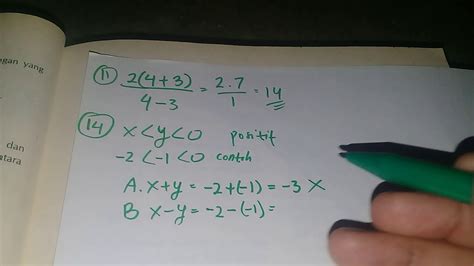 gan yang
dan
tara
11) 2(4+3) / 4-3 = 2.7 / 1 = 14
14) x<y<0 positif
-2<-1<0 contoh
A. x+y = -2+(-1) = -3 X
B x-y = -2-(-1) =